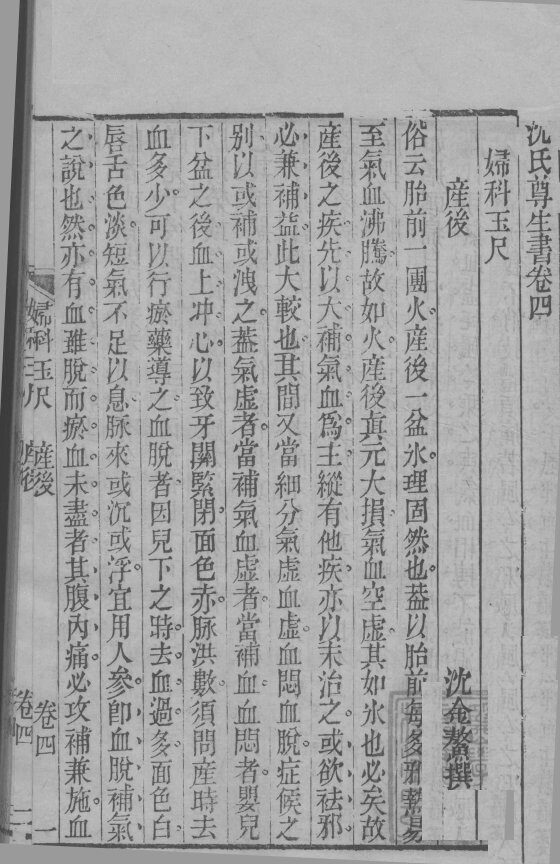 沈氏尊生書卷四
婦科玉尺
沈金鰲撰
產後
俗云胎前一團火產後一盆氷理固然也葢以胎前每多邪熱易
至氣血沸騰故如火產後眞元大損氣血空虛其如氷也必矣故
產後之疾先以大補氣血爲主縱有他疾亦以末治之或欲祛邪
必兼補益此大較也其間又當細分氣虛血虛血悶血脫症候之
别以或補或洩之葢氣虛者當補氣血虛者當補血血悶者嬰兒
下盆之後血上冲心以致牙關緊閉面色赤脉洪數須問產時去
血多少可以行瘀藥導之血脫者因兒下之時去血過多面色白
唇舌色淡短氣不足以息脉來或沉或浮宜用人參卽血脫補氣
之說也然亦有血雖脫而瘀血未盡者其腹內痛必攻補兼施血
婦科玉尺 產後 卷四 一